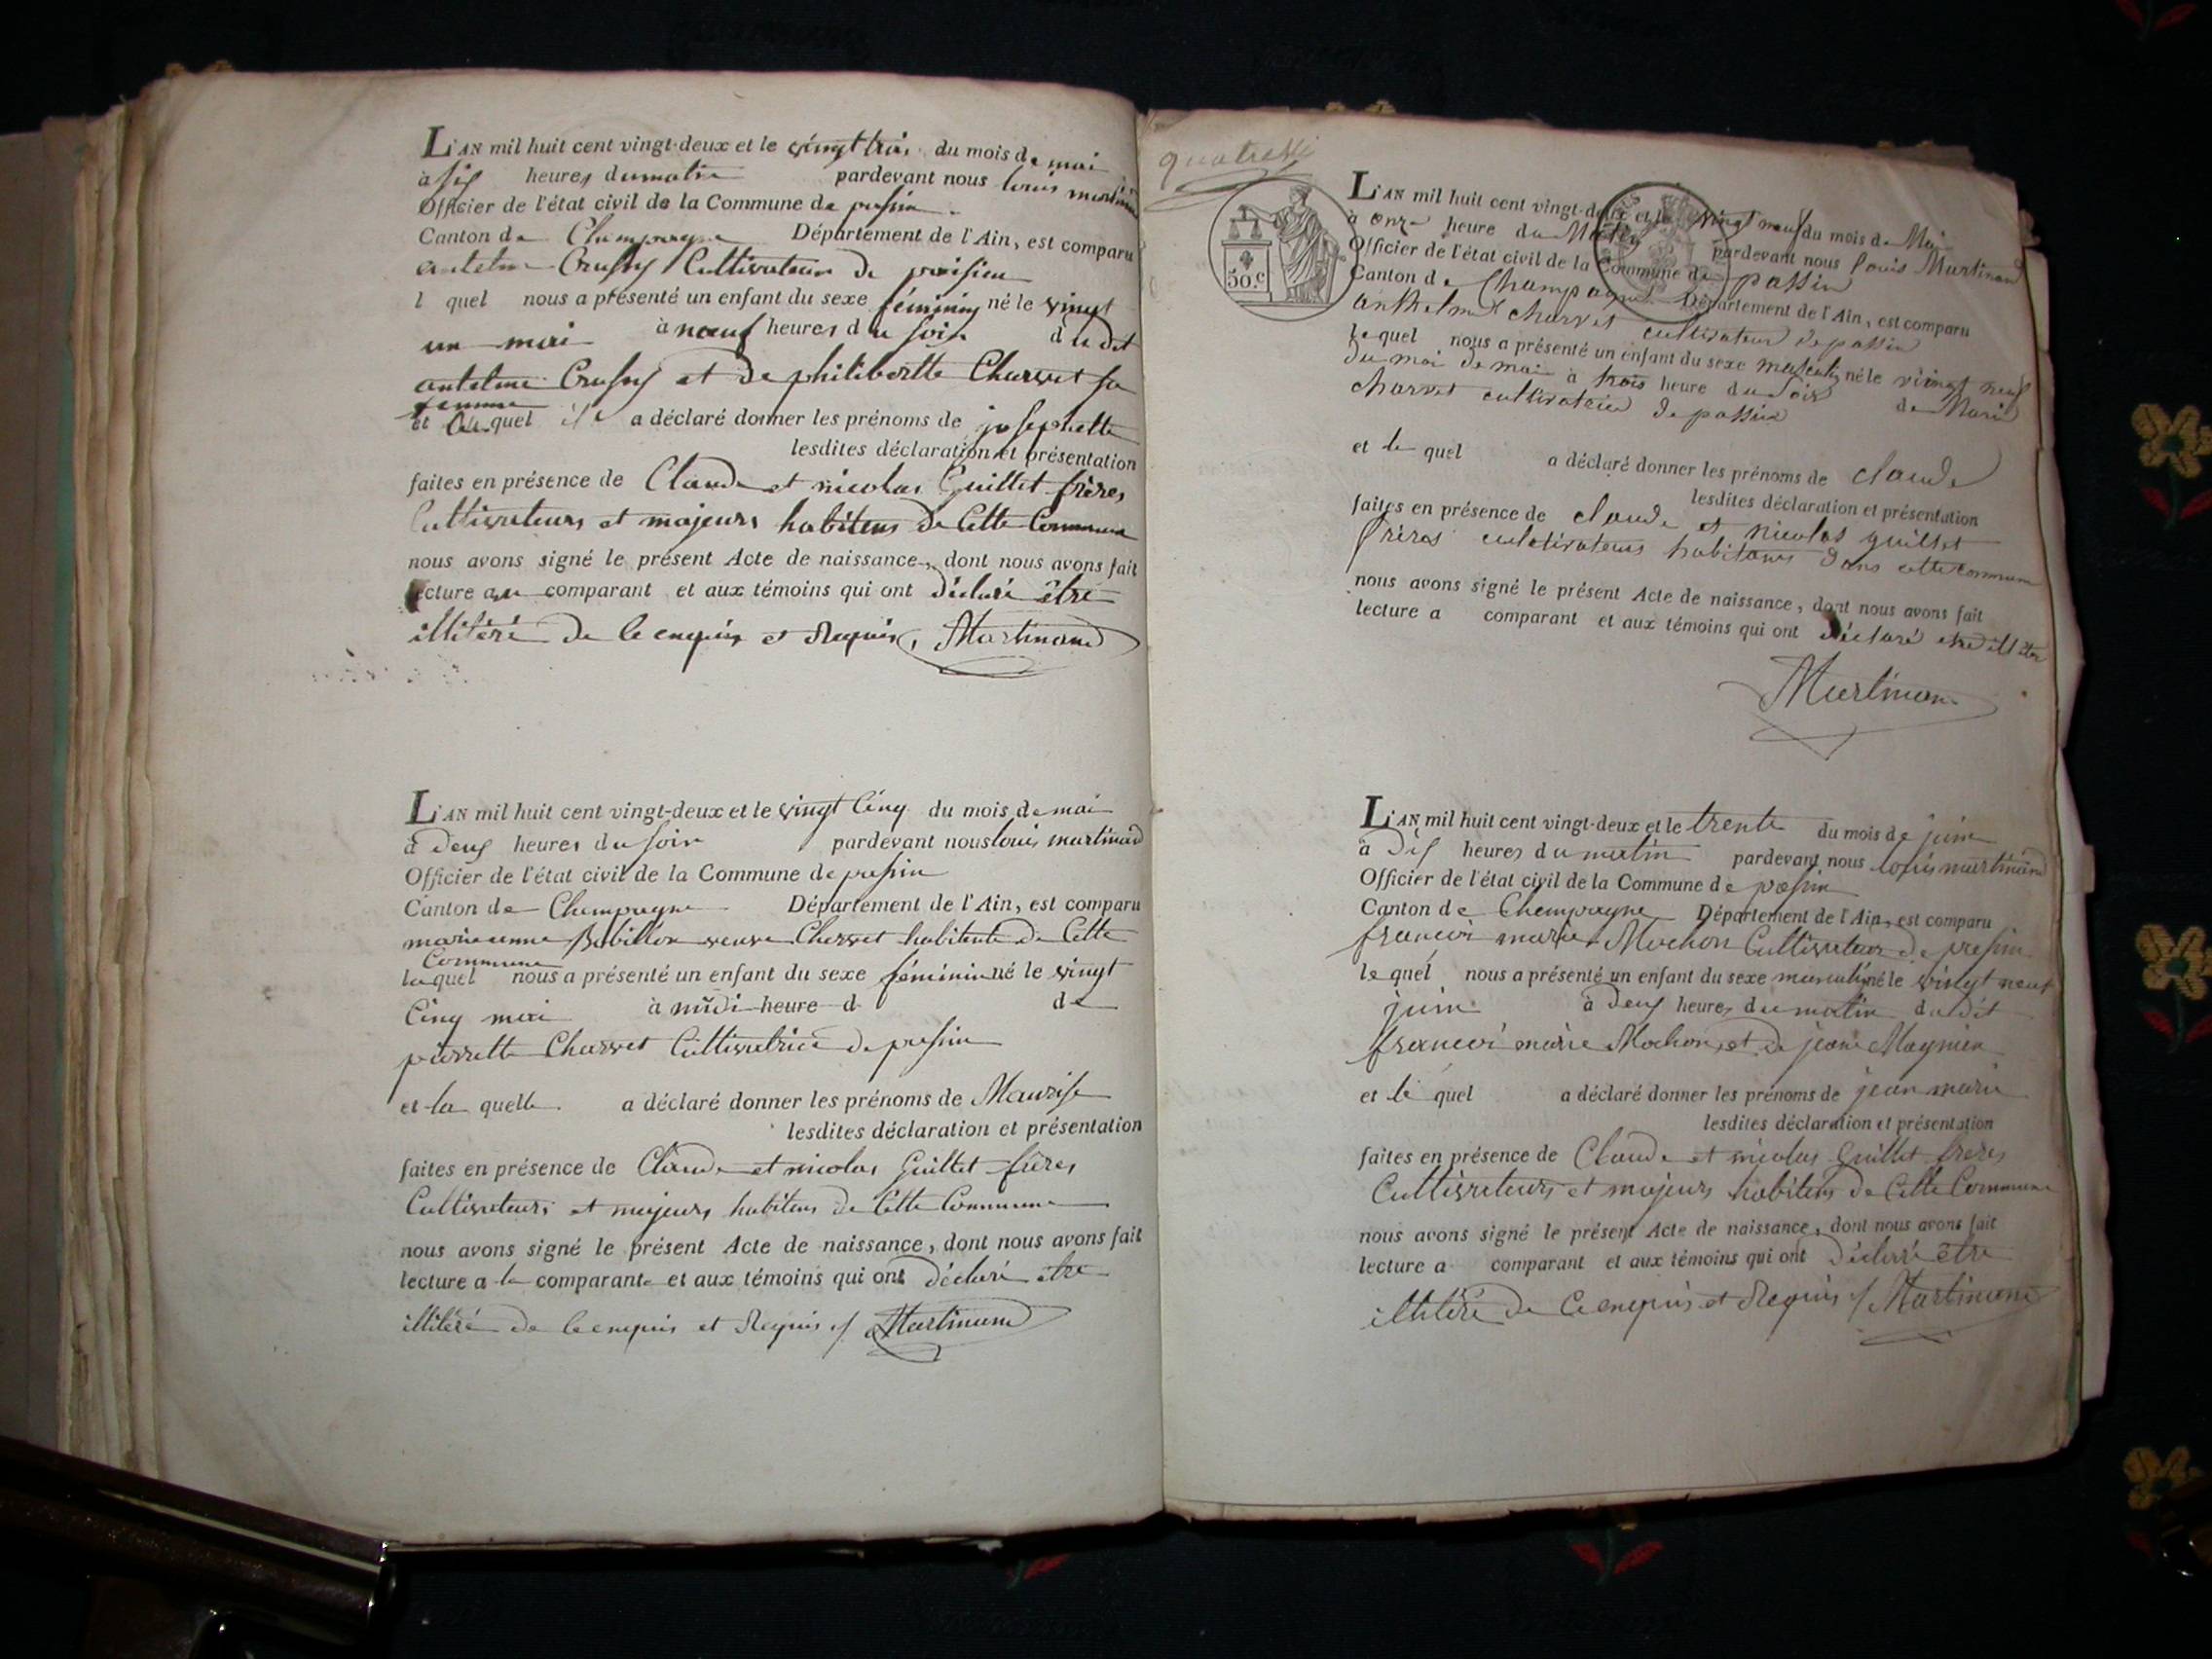 L'AN mil huit cent vingt-deux et le vingt trois du mois de mai
à six heures du matin pardevant nous louis martinand
Officier de l'état civil de la Commune de passin
Canton de Champagne Département de l'Ain, est comparu
antelme Cultivateur de
l quel nous a présenté un enfant du sexe féminin né le vingt
un mai à neuf heures du soir dudit
antelme et de philiberte Charvet sa
femme
et quel il a déclaré donner les prénoms de josephette
lesdites déclaration et présentation
faites en présence de Claude et nicolas Guillet frères
Cultivateurs et majeurs habitens de Cette Commune
nous avons signé le présent Acte de naissance, dont nous avons fait
lecture au comparant et aux témoins qui ont déclaré être
illitéré de ce enquis et Requis, Martinand
L'AN mil huit cent vingt-deux et le vingt Cinq du mois de mai
à deux heures du soir pardevant nous louis martinand
Officier de l'état civil de la Commune de passin
Canton de Champagne Département de l'Ain, est comparu
marieanne Babillon veuve Charvet habitente de Cette
Commune
laquel nous a présenté un enfant du sexe féminin né le vingt
Cinq mai à midi heure d de
pierrette Charvet Cultivatrice de passin
et la quelle a déclaré donner les prénoms de Maurise
lesdites déclaration et présentation
faites en présence de Claude et nicolas Guillet frères
Cultivateurs et majeurs habitens de Cette Commune
nous avons signé le présent Acte de naissance, dont nous avons fait
lecture a la comparante et aux témoins qui ont déclaré être
illitéré de ce enquis et Requis Martinand
50.c
L'AN mil huit cent vingt-deux et le vingt neuf du mois de Mai
à onze heure du Matin pardevant nous louis Martinand
Officier de l'état civil de la Commune de passin
Canton de Champagne Département de l'Ain, est comparu
anthelme charvet cultivateur de passin
le quel nous a présenté un enfant du sexe masculin né le vingt neuf
du moi de mai à trois heure du Soir de Marie
charvet cultivateur de passin
et le quel a déclaré donner les prénoms de claude
lesdites déclaration et présentation
faites en présence de claude et nicolas guillet
frères cultivateurs habitans dans cette commune
nous avons signé le présent Acte de naissance, dont nous avons fait
lecture a comparant et aux témoins qui ont déclaré
Martinan
L'AN mil huit cent vingt-deux et le trente du mois de juin
à dix heures du matin pardevant nous louis martinand
Officier de l'état civil de la Commune de passin
Canton de Champagne Département de l'Ain, est comparu
francoi marie Mochon Cultivateur de passin
le quel nous a présenté un enfant du sexe masculin né le vingt neuf
juin à deux heures du matin dudit
francoi marie Mochon et de jeane Maynier
et le quel a déclaré donner les prénoms de jean marie
lesdites déclaration et présentation
faites en présence de Claude et nicolas Guillet freres
Cultivateurs et majeurs habitens de Cette Commune
nous avons signé le présent Acte de naissance, dont nous avons fait
lecture a comparant et aux témoins qui ont déclaré être
illitéré de Ce enquis et Requis Martinand